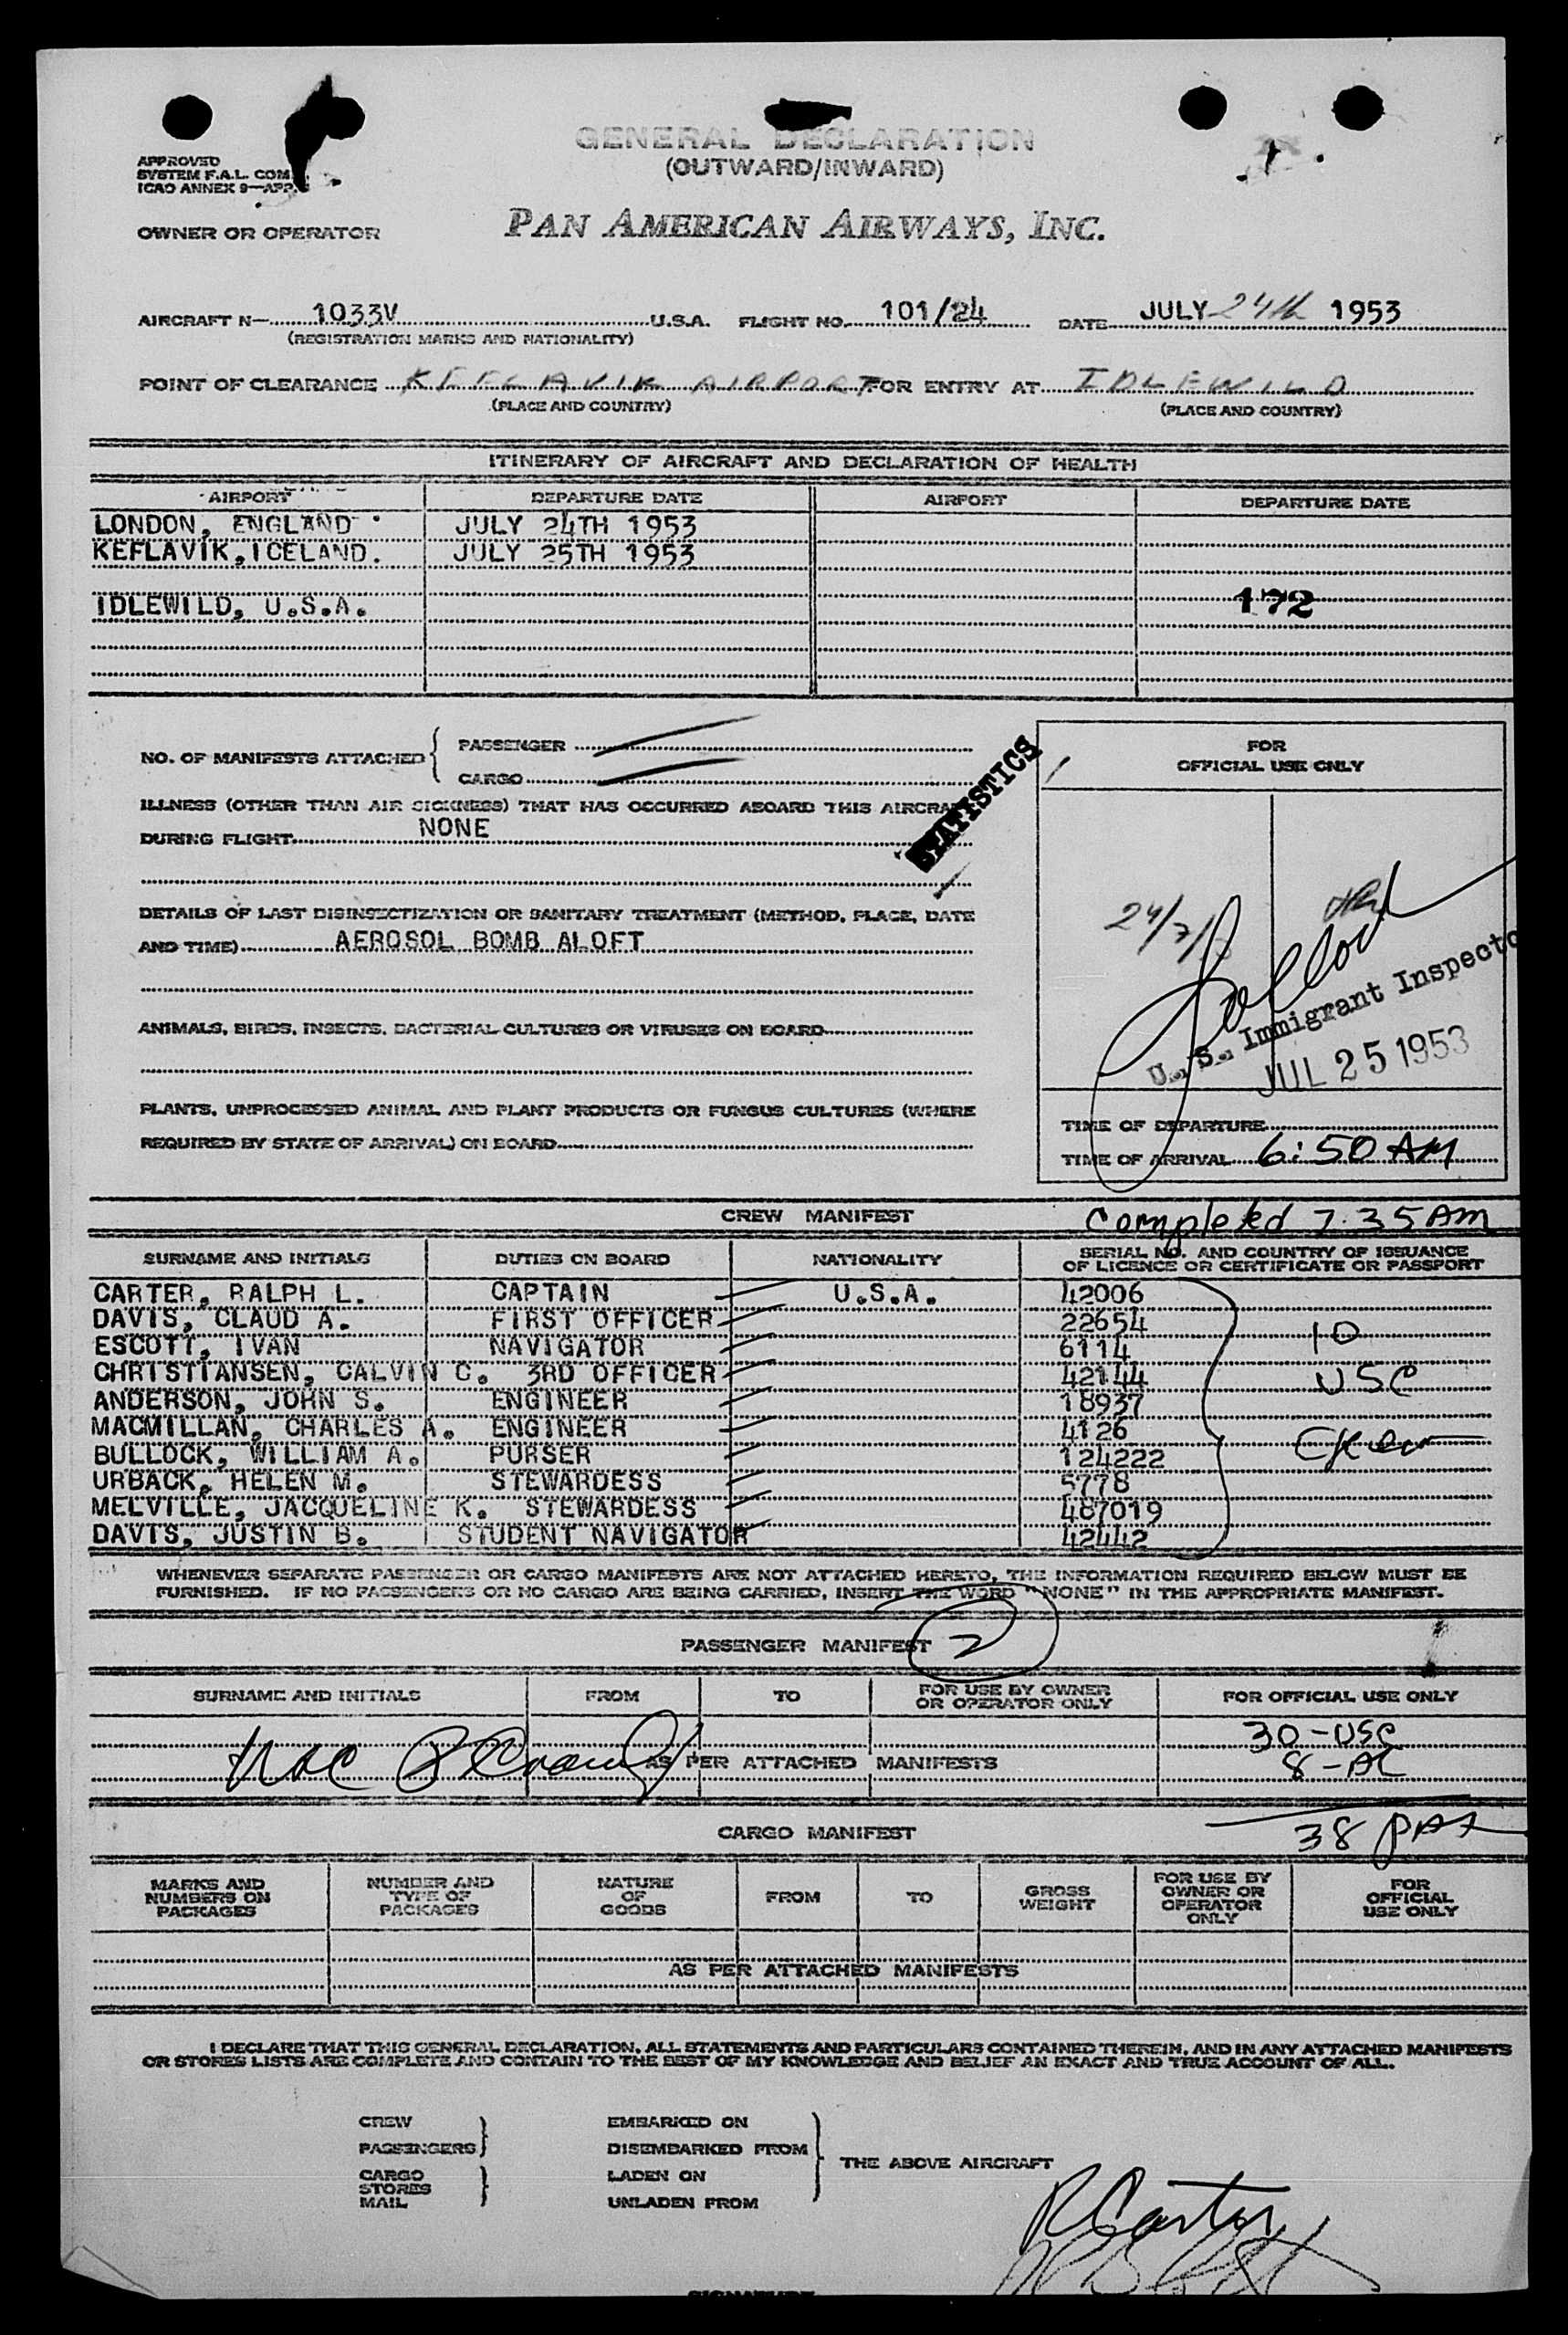 GENERAL DECLARATION
(OUTWARD/INWARD)
APPROVED
SYSTEM F.A.L. COM.
ICAO ANNEX 9—APP.
OWNER OR OPERATOR
PAN AMERICAN AIRWAYS, INC.
AIRCRAFT N— 1033V U.S.A. FLIGHT NO. 101/24 DATE JULY 24th 1953
(REGISTRATION MARKS AND NATIONALITY)
POINT OF CLEARANCE KEFLAVIK AIRPORT FOR ENTRY AT IDLEWILD
(PLACE AND COUNTRY) (PLACE AND COUNTRY)
ITINERARY OF AIRCRAFT AND DECLARATION OF HEALTH
AIRPORT DEPARTURE DATE AIRPORT DEPARTURE DATE
LONDON, ENGLAND JULY 24TH 1953
KEFLAVIK, ICELAND. JULY 25TH 1953
IDLEWILD, U.S.A. 172
NO. OF MANIFESTS ATTACHED { PASSENGER
CARGO
STATISTICS
ILLNESS (OTHER THAN AIR SICKNESS) THAT HAS OCCURRED ABOARD THIS
DURING FLIGHT NONE
DETAILS OF LAST DISINSECTIZATION OR SANITARY TREATMENT (METHOD, PLACE, DATE
AND TIME) AEROSOL BOMB ALOFT
ANIMALS, BIRDS, INSECTS, BACTERIAL CULTURES OR VIRUSES ON BOARD
PLANTS, UNPROCESSED ANIMAL AND PLANT PRODUCTS OR FUNGUS CULTURES (WHERE
REQUIRED BY STATE OF ARRIVAL) ON BOARD
FOR
OFFICIAL USE ONLY
24/7/
U. S. Immigrant Inspecto
JUL 25 1953
TIME OF DEPARTURE
TIME OF ARRIVAL 6:50 AM
CREW MANIFEST Completed 7.35 AM
SURNAME AND INITIALS DUTIES ON BOARD NATIONALITY SERIAL NO. AND COUNTRY OF ISSUANCE
OF LICENCE OR CERTIFICATE OR PASSPORT
CARTER, RALPH L. CAPTAIN U.S.A. 42006
DAVIS, CLAUD A. FIRST OFFICER 22654
ESCOTT, IVAN NAVIGATOR 6114 10
CHRISTIANSEN, CALVIN C. 3RD OFFICER 42144 USC
ANDERSON, JOHN S. ENGINEER 18937
MACMILLAN, CHARLES A. ENGINEER 4126
BULLOCK, WILLIAM A. PURSER 124222 Crew
URBACK, HELEN M. STEWARDESS 5778
MELVILLE, JACQUELINE K. STEWARDESS 487019
DAVIS, JUSTIN B. STUDENT NAVIGATOR 42442
WHENEVER SEPARATE PASSENGER OR CARGO MANIFESTS ARE NOT ATTACHED HERETO, THE INFORMATION REQUIRED BELOW MUST BE
FURNISHED. IF NO PASSENGERS OR NO CARGO ARE BEING CARRIED, INSERT THE WORD "NONE" IN THE APPROPRIATE MANIFEST.
PASSENGER MANIFEST 2
SURNAME AND INITIALS FROM TO FOR USE BY OWNER
OR OPERATOR ONLY FOR OFFICIAL USE ONLY
30 - USC
AS PER ATTACHED MANIFESTS 8 - AL
CARGO MANIFEST 38 PAX
MARKS AND
NUMBERS ON
PACKAGES
NUMBER AND
TYPE OF
PACKAGES
NATURE
OF
GOODS
FROM
TO
GROSS
WEIGHT
FOR USE BY
OWNER OR
OPERATOR
ONLY
FOR
OFFICIAL
USE ONLY
AS PER ATTACHED MANIFESTS
I DECLARE THAT THIS GENERAL DECLARATION, ALL STATEMENTS AND PARTICULARS CONTAINED THEREIN, AND IN ANY ATTACHED MANIFESTS
OR STORES LISTS ARE COMPLETE AND CONTAIN TO THE BEST OF MY KNOWLEDGE AND BELIEF AN EXACT AND TRUE ACCOUNT OF ALL.
CREW EMBARKED ON
PASSENGERS DISEMBARKED FROM
THE ABOVE AIRCRAFT
CARGO LADEN ON
STORES
MAIL UNLADEN FROM
R Carter
SIGNATURE